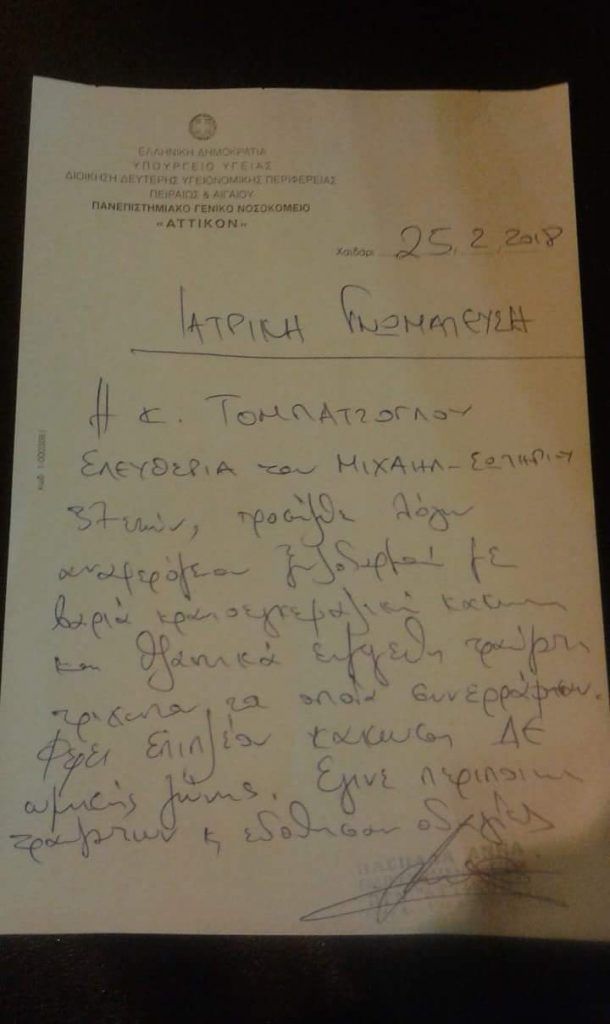 ΕΛΛΗΝΙΚΗ ΔΗΜΟΚΡΑΤΙΑ
ΥΠΟΥΡΓΕΙΟ ΥΓΕΙΑΣ
ΔΙΟΙΚΗΣΗ ΔΕΥΤΕΡΗΣ ΥΓΕΙΟΝΟΜΙΚΗΣ ΠΕΡΙΦΕΡΕΙΑΣ
ΠΕΙΡΑΙΩΣ & ΑΙΓΑΙΟΥ
ΠΑΝΕΠΙΣΤΗΜΙΑΚΟ ΓΕΝΙΚΟ ΝΟΣΟΚΟΜΕΙΟ
«ΑΤΤΙΚΟΝ»
Χαϊδάρι 25.2.2018
ΙΑΤΡΙΚΗ ΓΝΩΜΑΤΕΥΣΗ
Η κ. ΤΟΜΠΑΤΖΟΓΛΟΥ
ΕΛΕΥΘΕΡΙΑ του ΜΙΧΑΗΛ-ΣΩΤΗΡΙΟΥ
37 ετών, προσήλθε λόγω
αναφερόμενου ξυλοδαρμού με
βαριά κρανιοεγκεφαλική κάκωση
και θλαστικά εκτεταμένα τραύματα
τριχωτού τα οποία συνερράφησαν.
Φέρει επιπλέον κάκωση ΔΕ
ωμικής ζώνης. Έγινε περιποίηση
τραυμάτων κ εδόθησαν οδηγίες